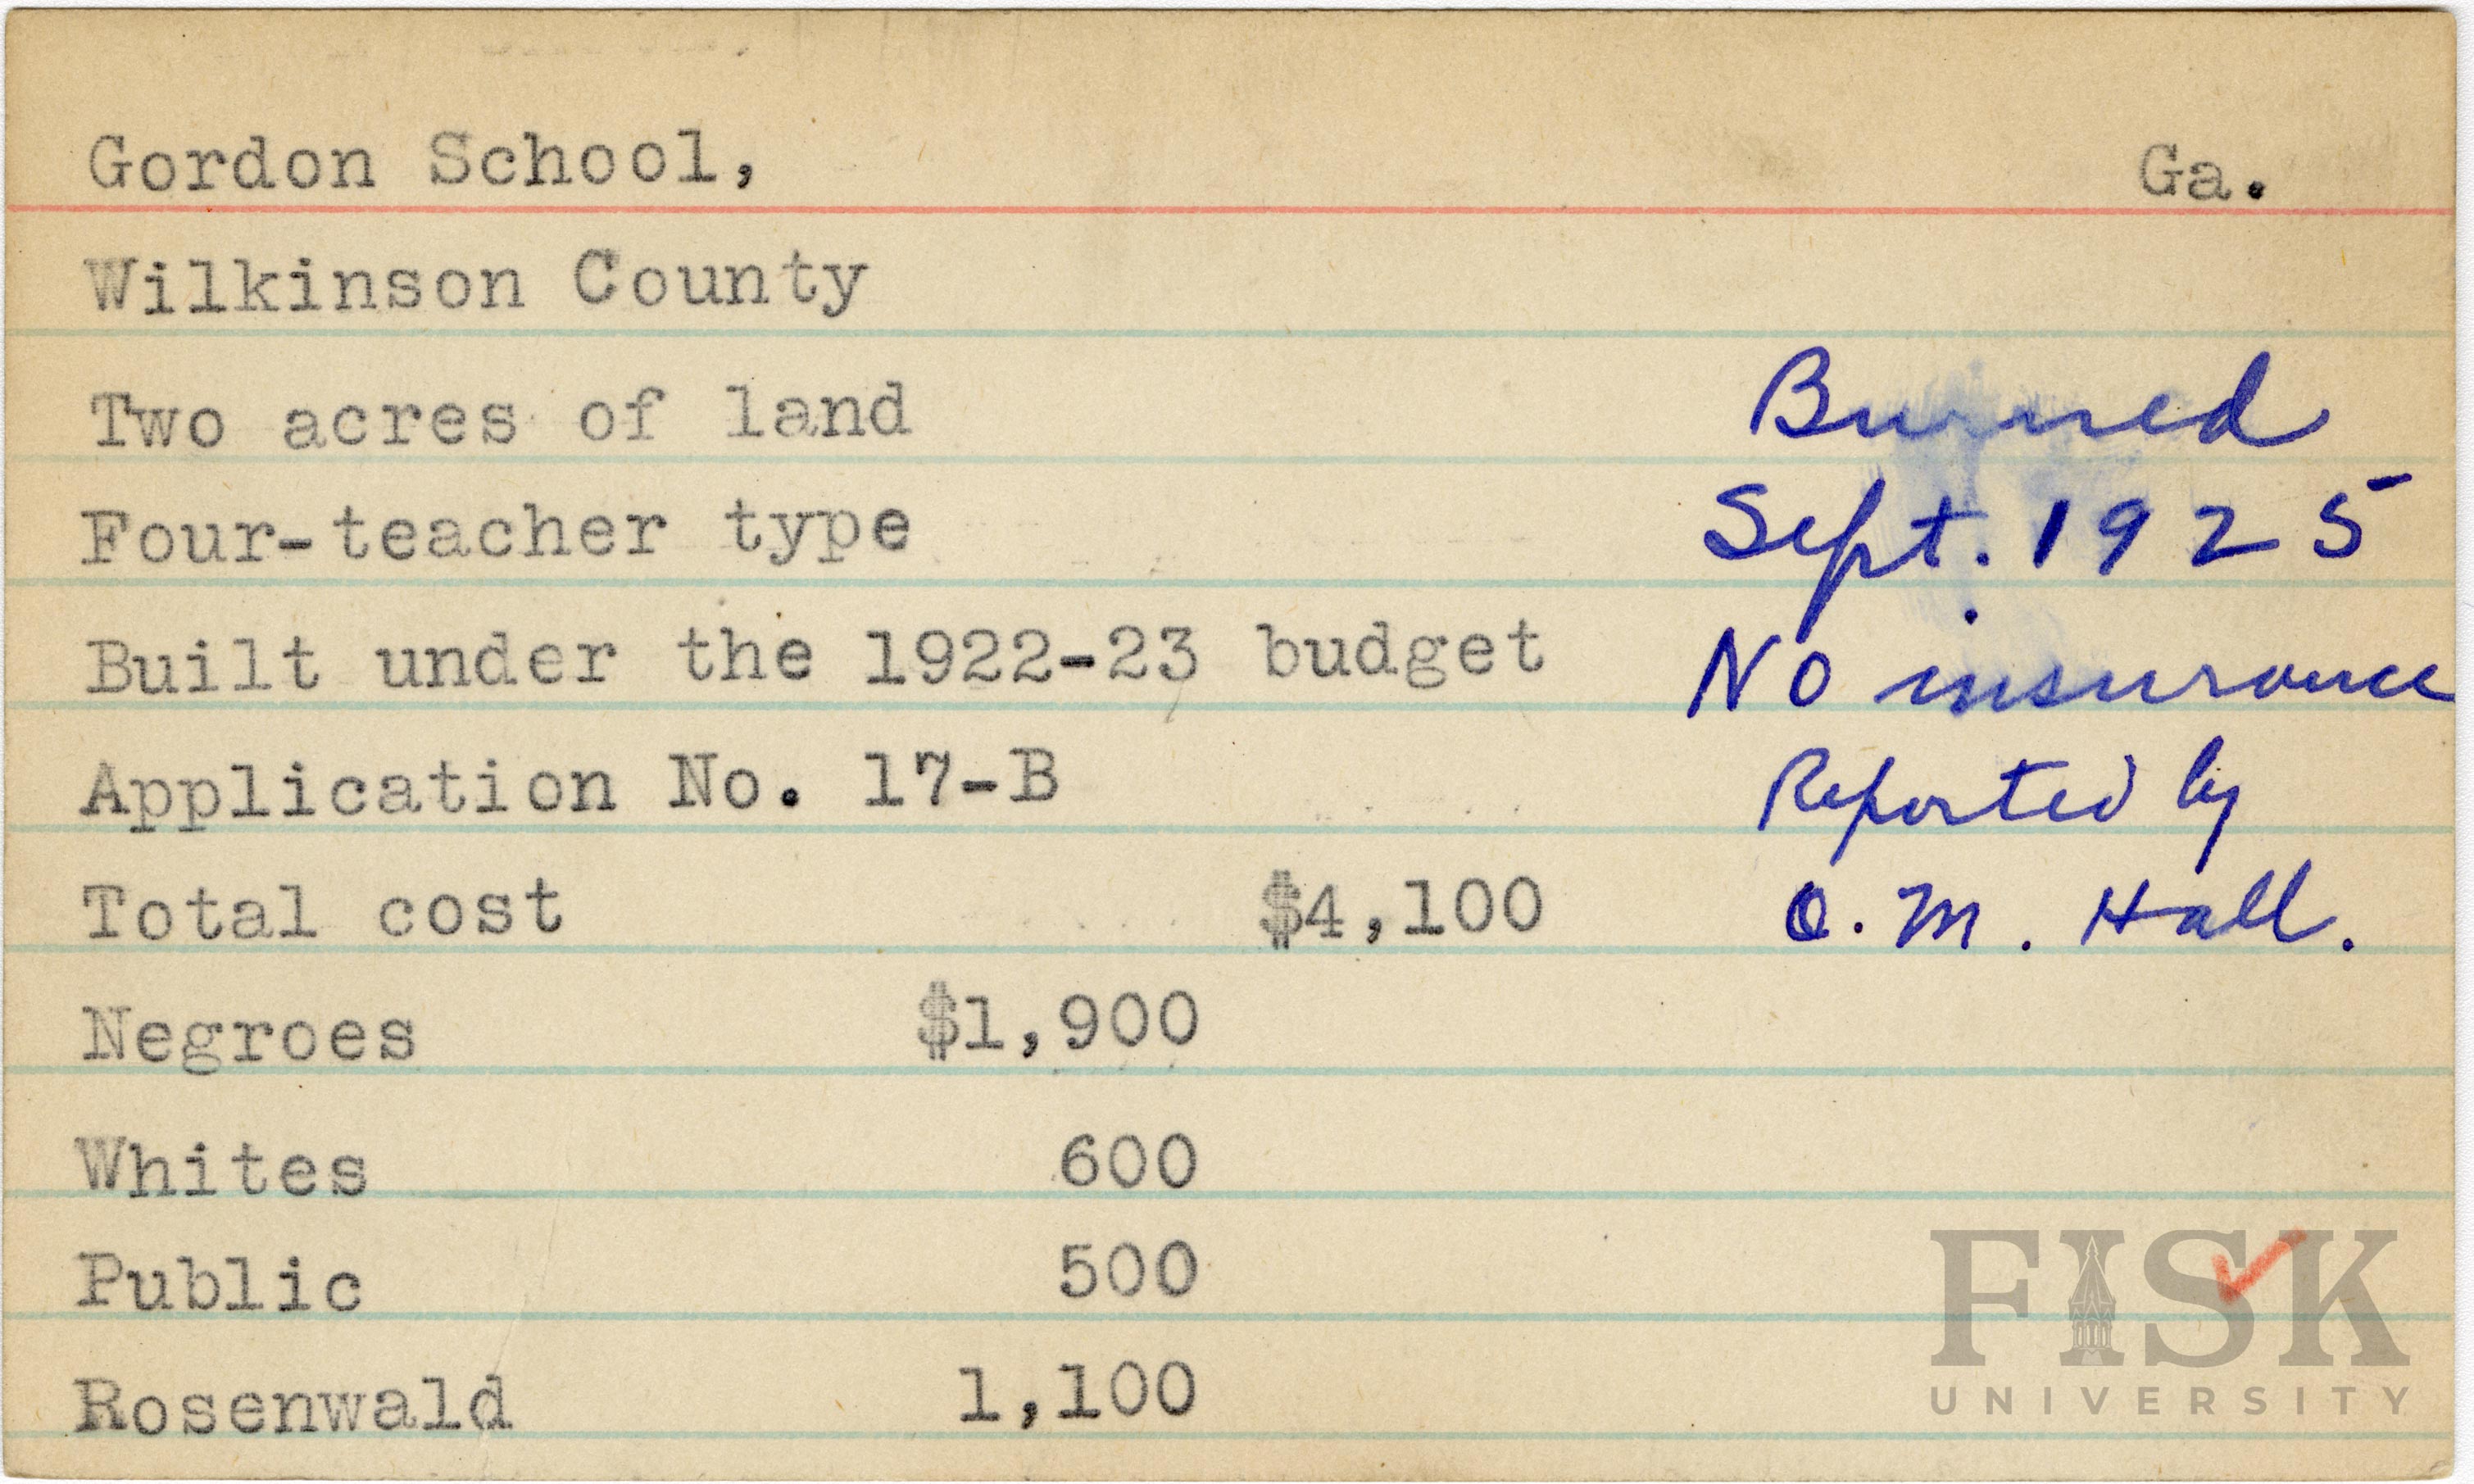 Gordon School, Ga.
Wilkinson County
Two acres of land
Four-teacher type
Built under the 1922-23 budget
Application No. 17-B
Total cost $4,100
Negroes $1,900
Whites 600
Public 500
Rosenwald 1,100
Burned
Sept. 1925
No insurance
Reported by
O. M. Hall.
FISK
UNIVERSITY